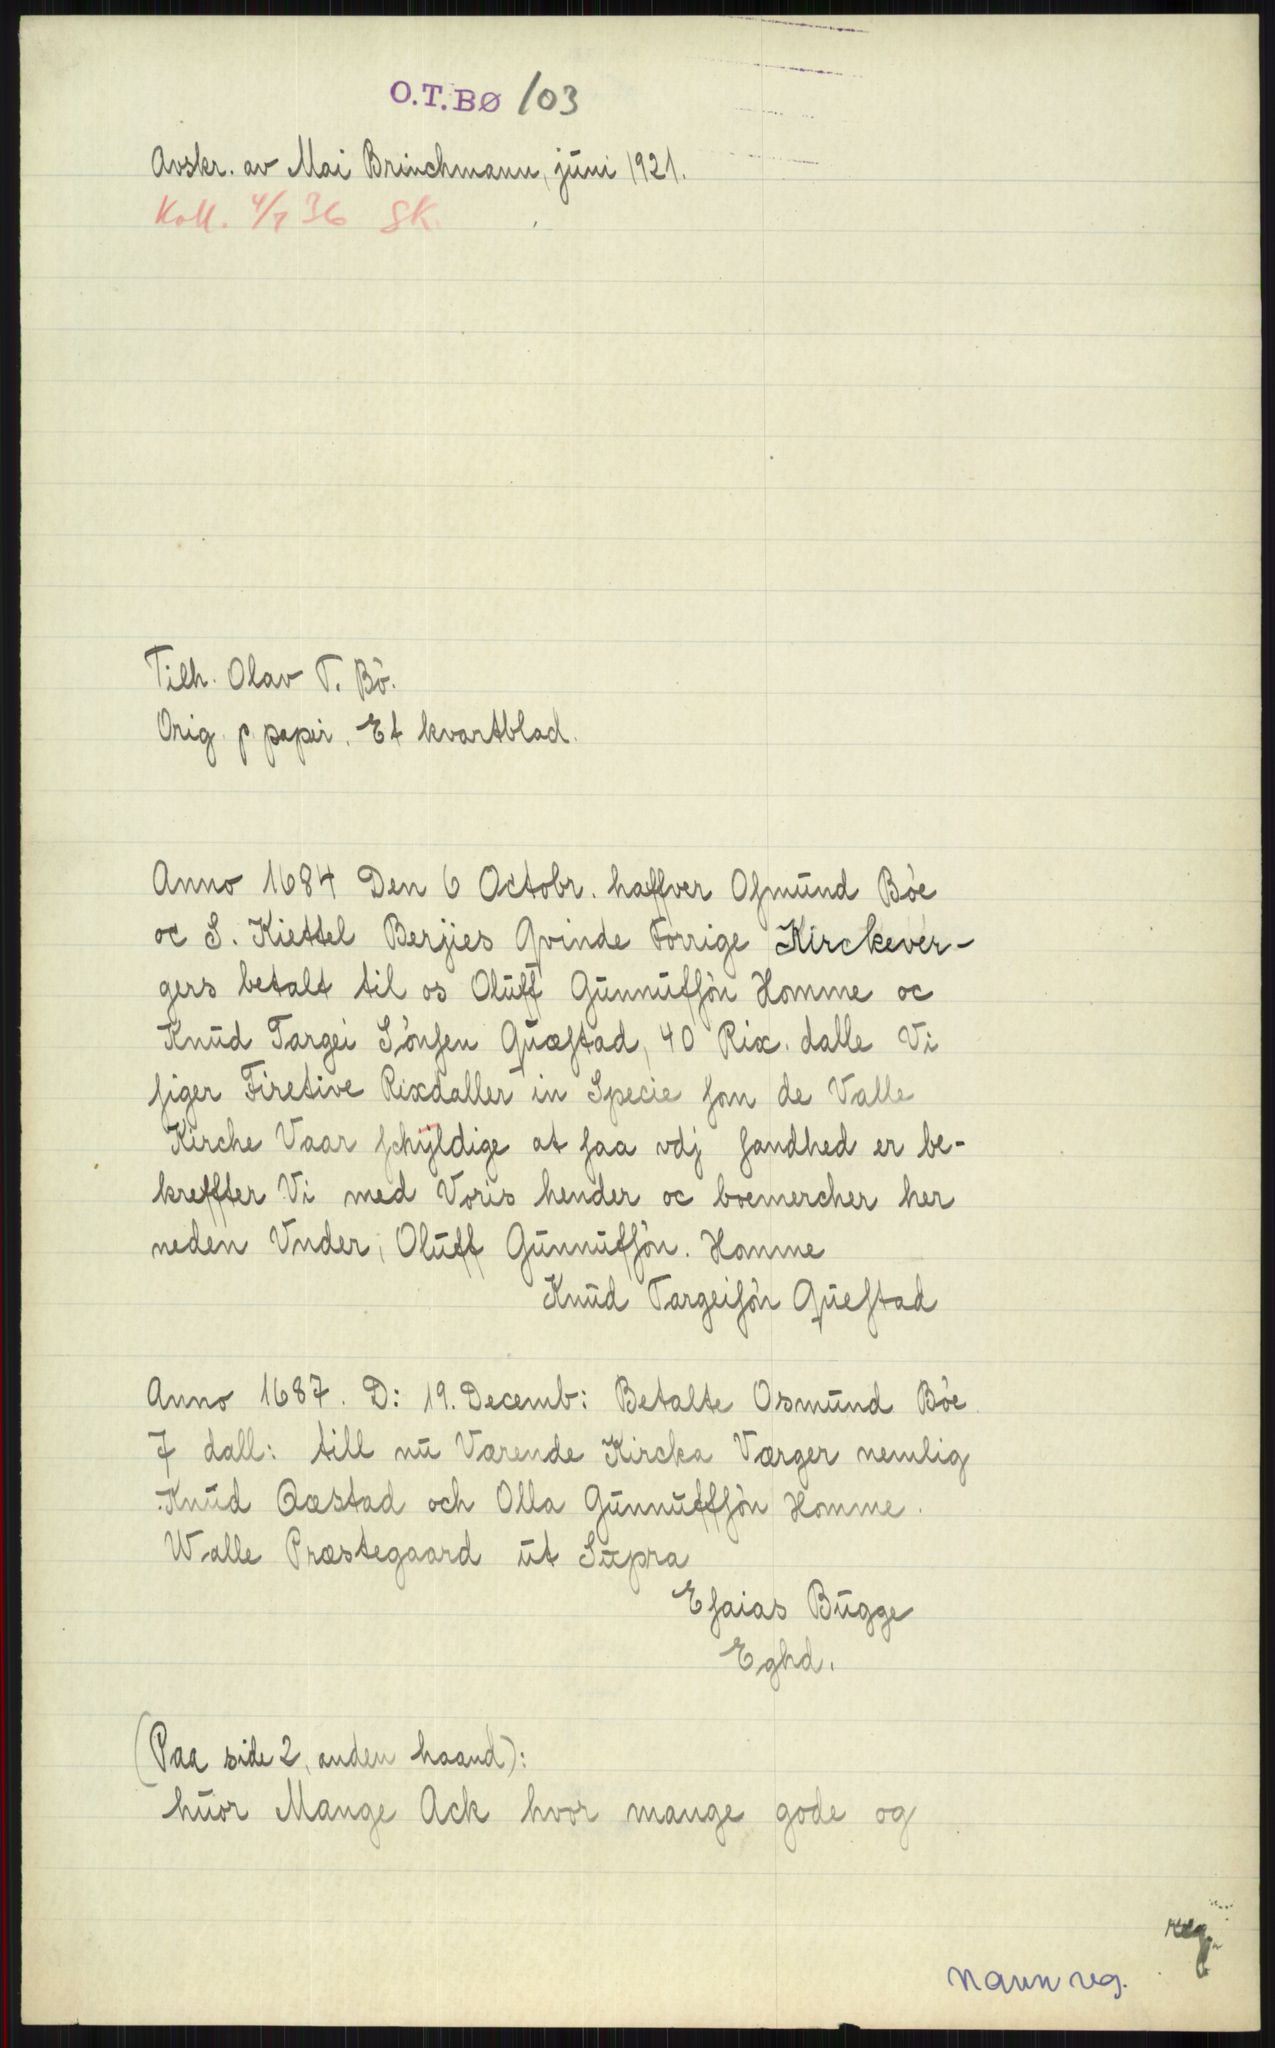 O.T.BØ /03
Avskr. av Mai Brinchmann, juni 1921.
Koll. 4/7 36 SK.
Tilh. Olav T. Bö.
Orig. p. papir. Et kvartblad.
Anno 1684 Den 6 Octobr. haffver Oſmund Böe
oc S. Kiettel Berjies Qvinde Forrige Kirckever-
gers betalt til os Oluff Gunnufſön Homme oc
Knud Targei Sönſen Quæſtad, 40 Rix. dalle Vi
ſiger Firetive Rixdaller in Specie ſom de Valle
Kirche Vaar ſchÿldige at ſaa vdj ſandhed er be-
kreffter Vi med Voris hender oc boemercher her
neden Vnder, Oluff Gunnufſön. Homme
Knud Targeiſön Queſtad
Anno 1687. D: 19. Decemb: Betalte Osmund Böe
7 dall: till nu Værende Kircka Værger nemlig
Knud Qæstad och Olla Gunnuffſön Homme.
Walle Præstegaard ut Supra
Eſaias Bugge
Eghd.
(Paa side 2, anden haand):
huor Mange Ack hvor mange gode og
reg.
navn reg.